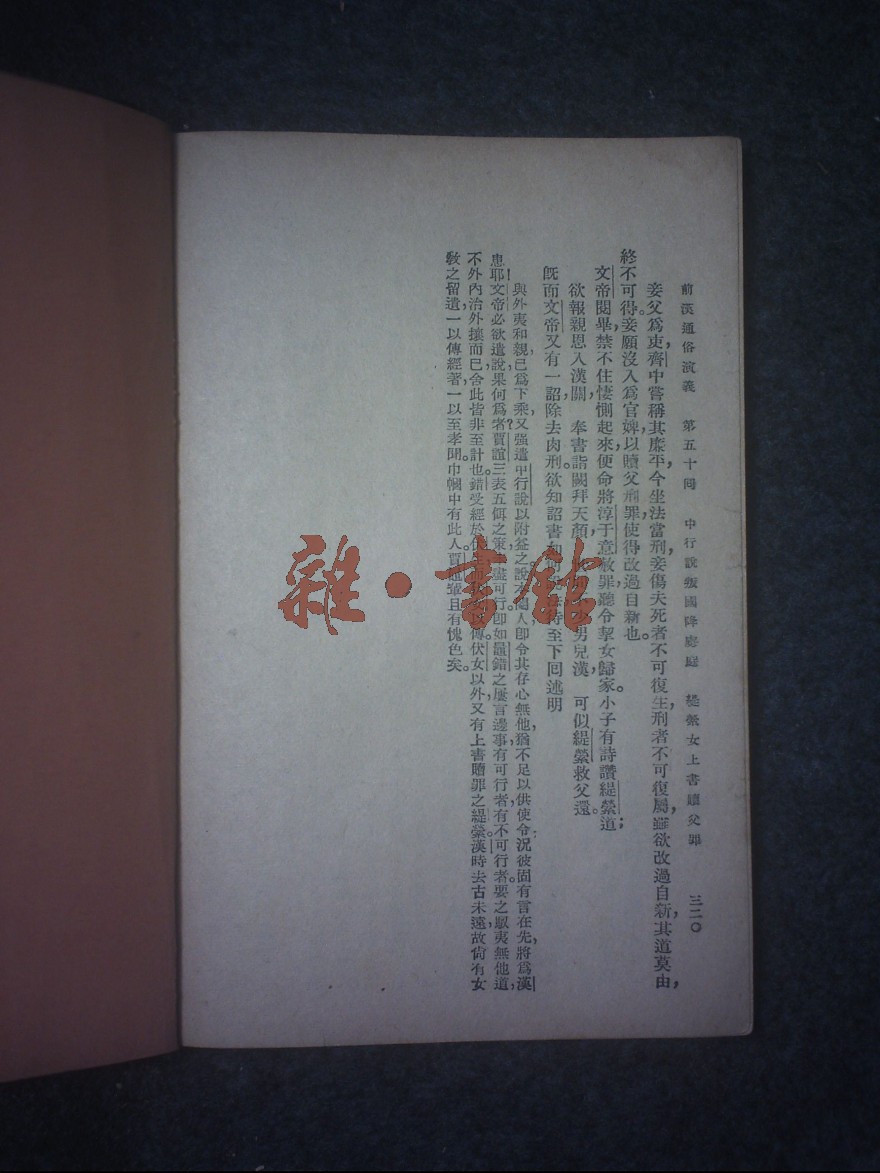 前漢通俗演義　第五十回　中行說叛國降虜庭　緹縈女上書贖父罪　三二〇
妾父爲吏，齊中嘗稱其廉平，今坐法當刑，妾傷夫死者不可復生，刑者不可復屬，雖欲改過自新，其道莫由，
終不可得。妾願沒入爲官婢，以贖父刑罪，使得改過自新也。
文帝閱畢，禁不住悽惻起來，便命將淳于意赦罪，聽令挈女歸家。小子有詩讚緹縈道；
欲報親恩入漢關，　奉書詣闕拜天顏，　男兒漢，　可似緹縈救父還。
旣而文帝又有一詔，除去肉刑。欲知詔書如何 待至下回述明
與外夷和親，已爲下乘，又强遣中行說以附益之，說本閹人，卽令其存心無他，猶不足以供使令，況彼固有言在先，將爲漢
患耶！文帝必欲遣說，果何爲者？賈誼三表五餌之策，盡可行。卽如鼂錯之屢言邊事，有可行者，有不可行者。要之馭夷無他道，
不外內治外攘而已，舍此皆非至計也。錯受經於伏 傳伏女以外，又有上書贖罪之緹縈，漢時去古未遠，故尙有女
敎之留遺，一以傳經著，一以至孝聞，巾幗中有此人，賈鼂輩且有愧色矣。
雜·書館